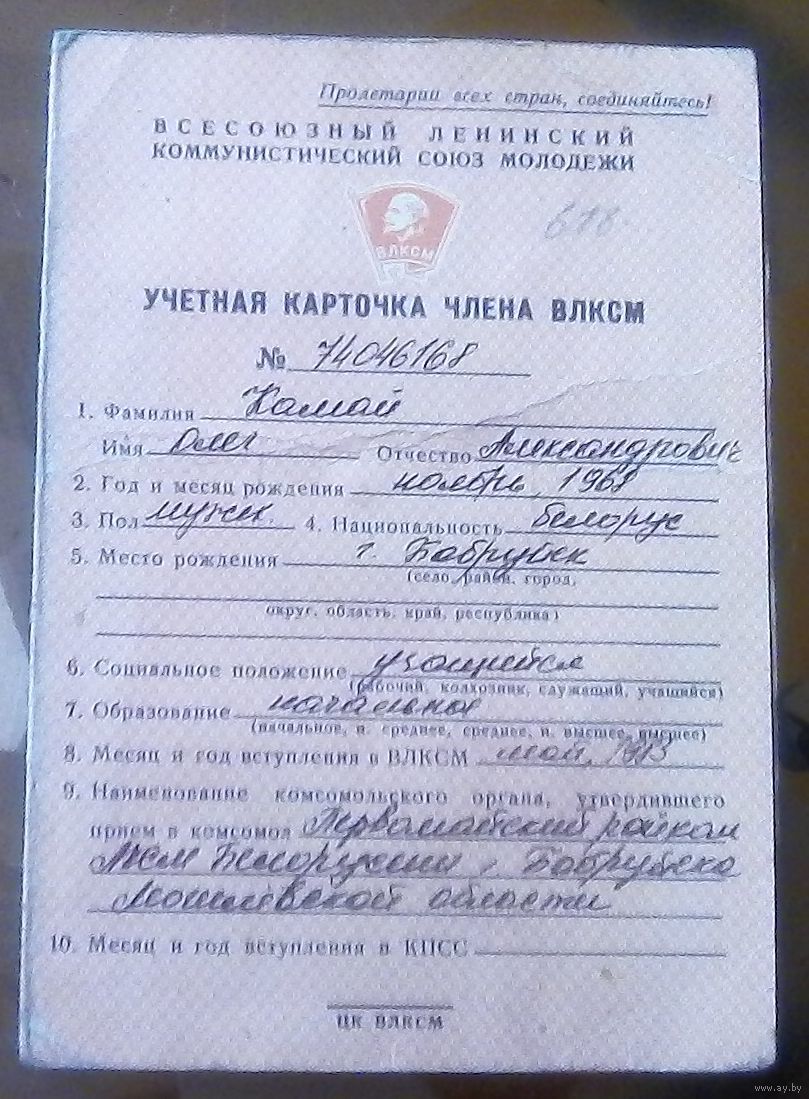 Пролетарии всех стран, соединяйтесь!
ВСЕСОЮЗНЫЙ ЛЕНИНСКИЙ
КОММУНИСТИЧЕСКИЙ СОЮЗ МОЛОДЕЖИ
ВЛКСМ
УЧЕТНАЯ КАРТОЧКА ЧЛЕНА ВЛКСМ
№ 74046168
1. Фамилия Камай
Имя Олег Отчество Александрович
2. Год и месяц рождения ноябрь, 1968
3. Пол мужск. 4. Национальность белорус
5. Место рождения г. Бобруйск
(село, район, город,
округ, область, край, республика)
6. Социальное положение учащийся
(рабочий, колхозник, служащий, учащийся)
7. Образование начальное
(начальное, н. среднее, среднее, н. высшее, высшее)
8. Месяц и год вступления в ВЛКСМ май,
9. Наименование комсомольского органа, утвердившего
прием в комсомол Первомайский райком
ЛКСМ Белоруссии г. Бобруйска
Могилёвской области
10. Месяц и год вступления в КПСС
ЦК ВЛКСМ
www.ay.by